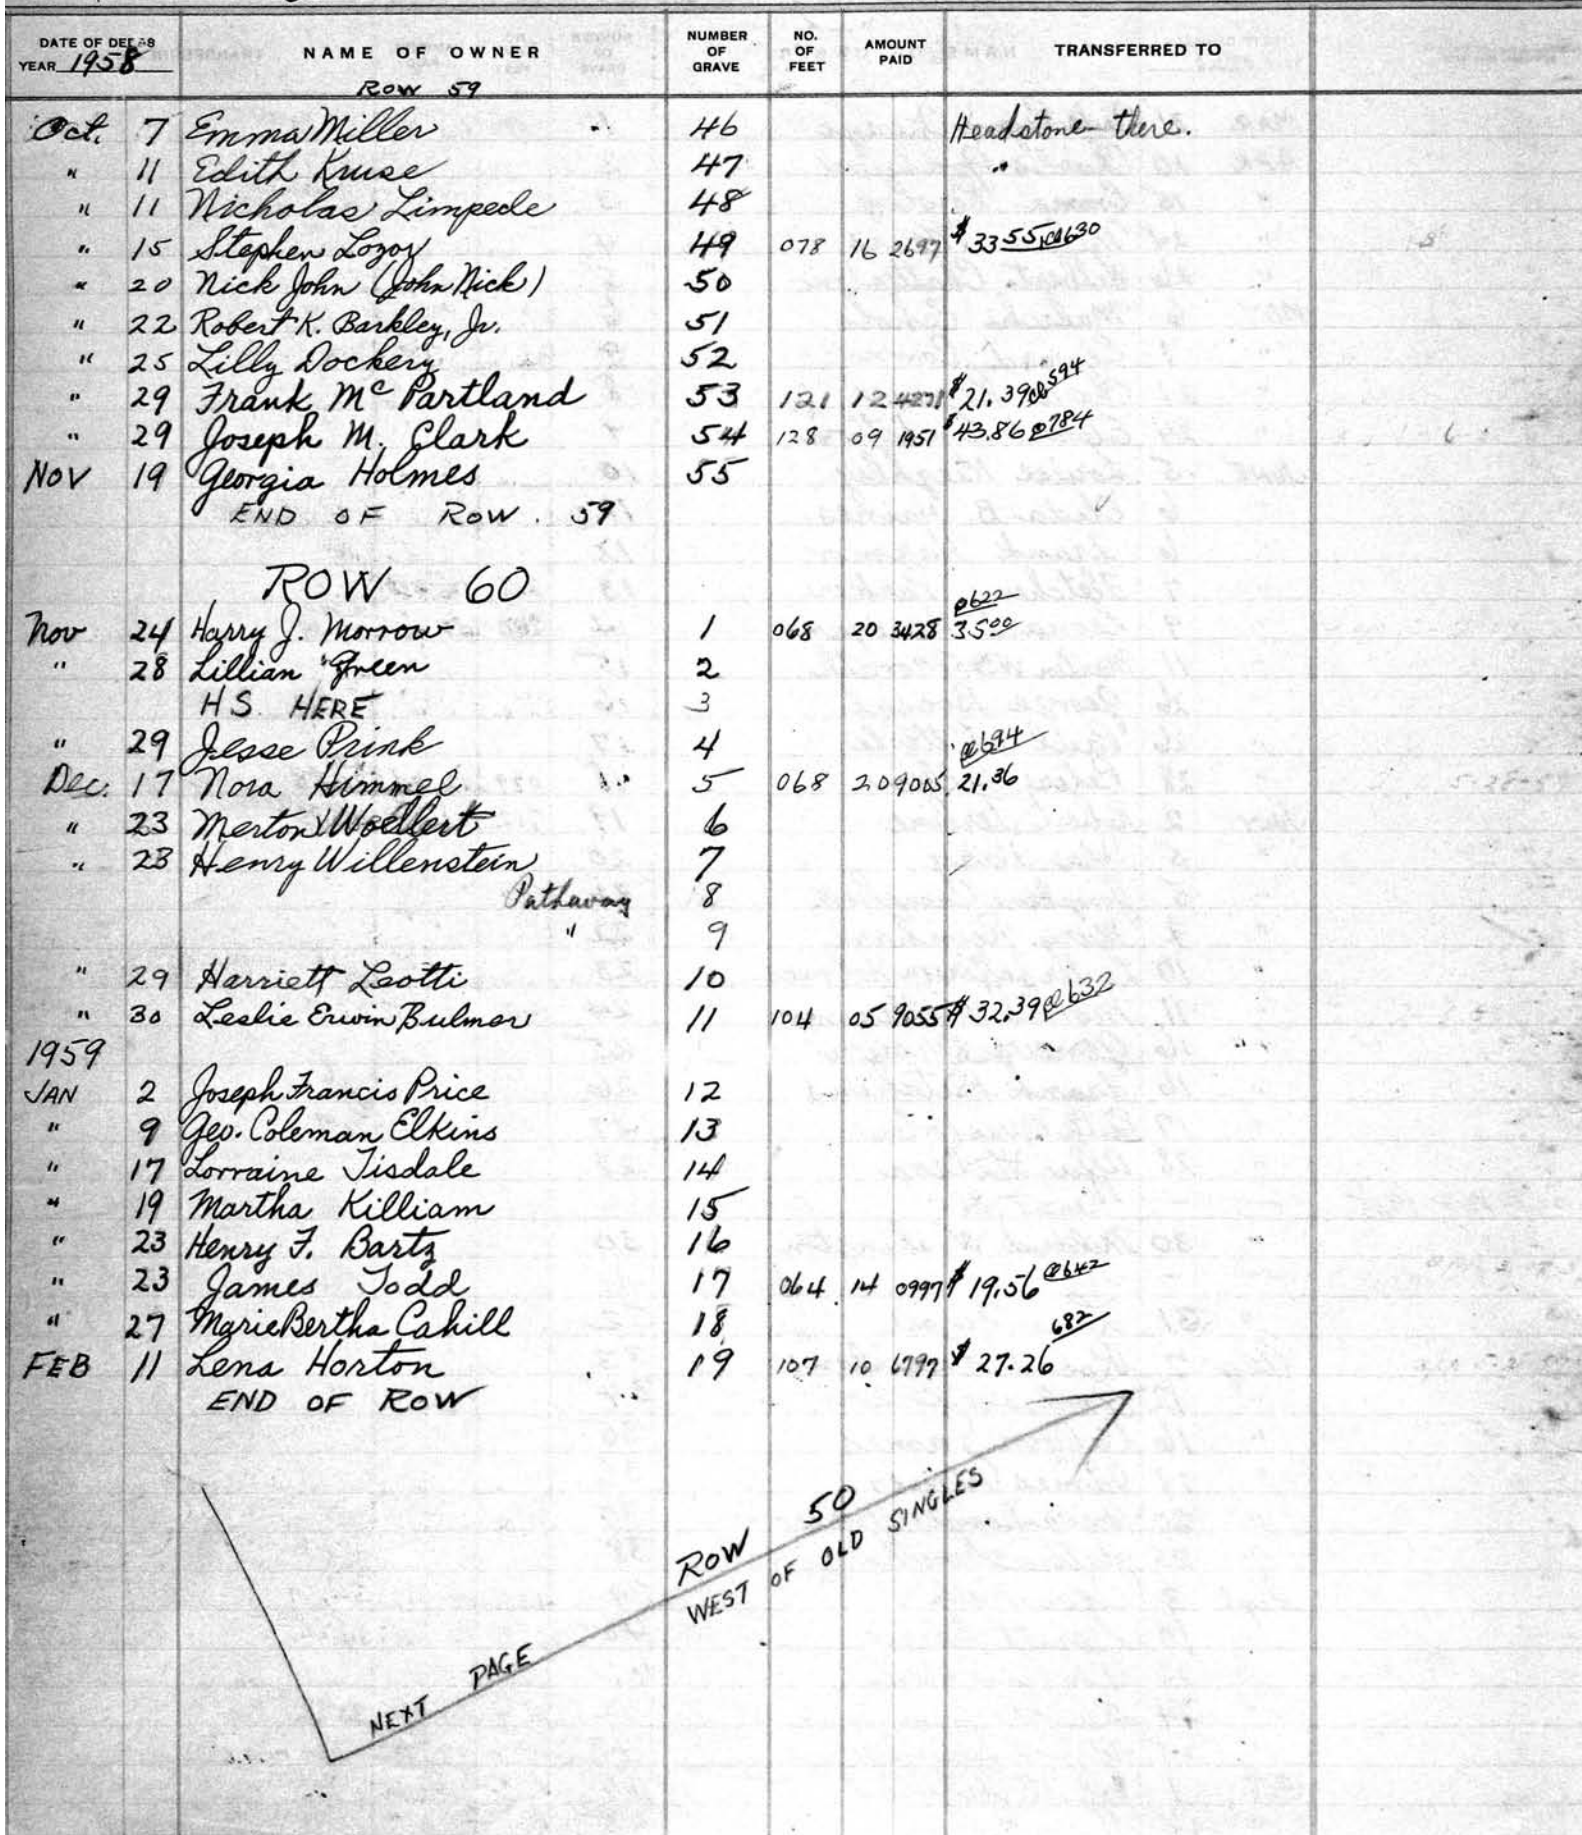 DATE OF DEEDS NAME OF OWNER NUMBER OF GRAVE NO. OF FEET AMOUNT PAID TRANSFERRED TO
YEAR 1958
ROW 59
Oct. 7 Emma Miller 46 Headstone there.
" 11 Edith Kruse 47 "
" 11 Nicholas Limpede 48
" 15 Stephen Lozoy 49 078 16 2697 $33 55 630
" 20 Nick John (John Nick) 50
" 22 Robert K. Barkley, Jr. 51
" 25 Lilly Dockery 52
" 29 Frank Mc Partland 53 121 12 4278 $21.39 594
" 29 Joseph M. Clark 54 128 09 1951 $43.86 784
NOV 19 Georgia Holmes 55
END OF ROW. 59
ROW 60
622
Nov 24 Harry J. Morrow 1 068 20 3428 35 00
" 28 Lillian Green 2
H S. HERE 3
" 29 Jesse Prink 4 694
Dec. 17 Nora Himmel 5 068 20 9005 21.36
" 23 Merton Woellert 6
" 23 Henry Willenstein 7
Pathway 8
" 9
" 29 Harriett Leotti 10
" 30 Leslie Erwin Bulmer 11 104 05 9055 $32.39 632
1959
JAN 2 Joseph Francis Price 12
" 9 Geo. Coleman Elkins 13
" 17 Lorraine Tisdale 14
" 19 Martha Killiam 15
" 23 Henry F. Bartz 16
" 23 James Todd 17 064 14 0997 $19.56 642
" 27 Marie Bertha Cahill 18 682
FEB 11 Lena Horton 19 107 10 6797 $27.26
END OF ROW
NEXT PAGE ROW 50
WEST OF OLD SINGLES